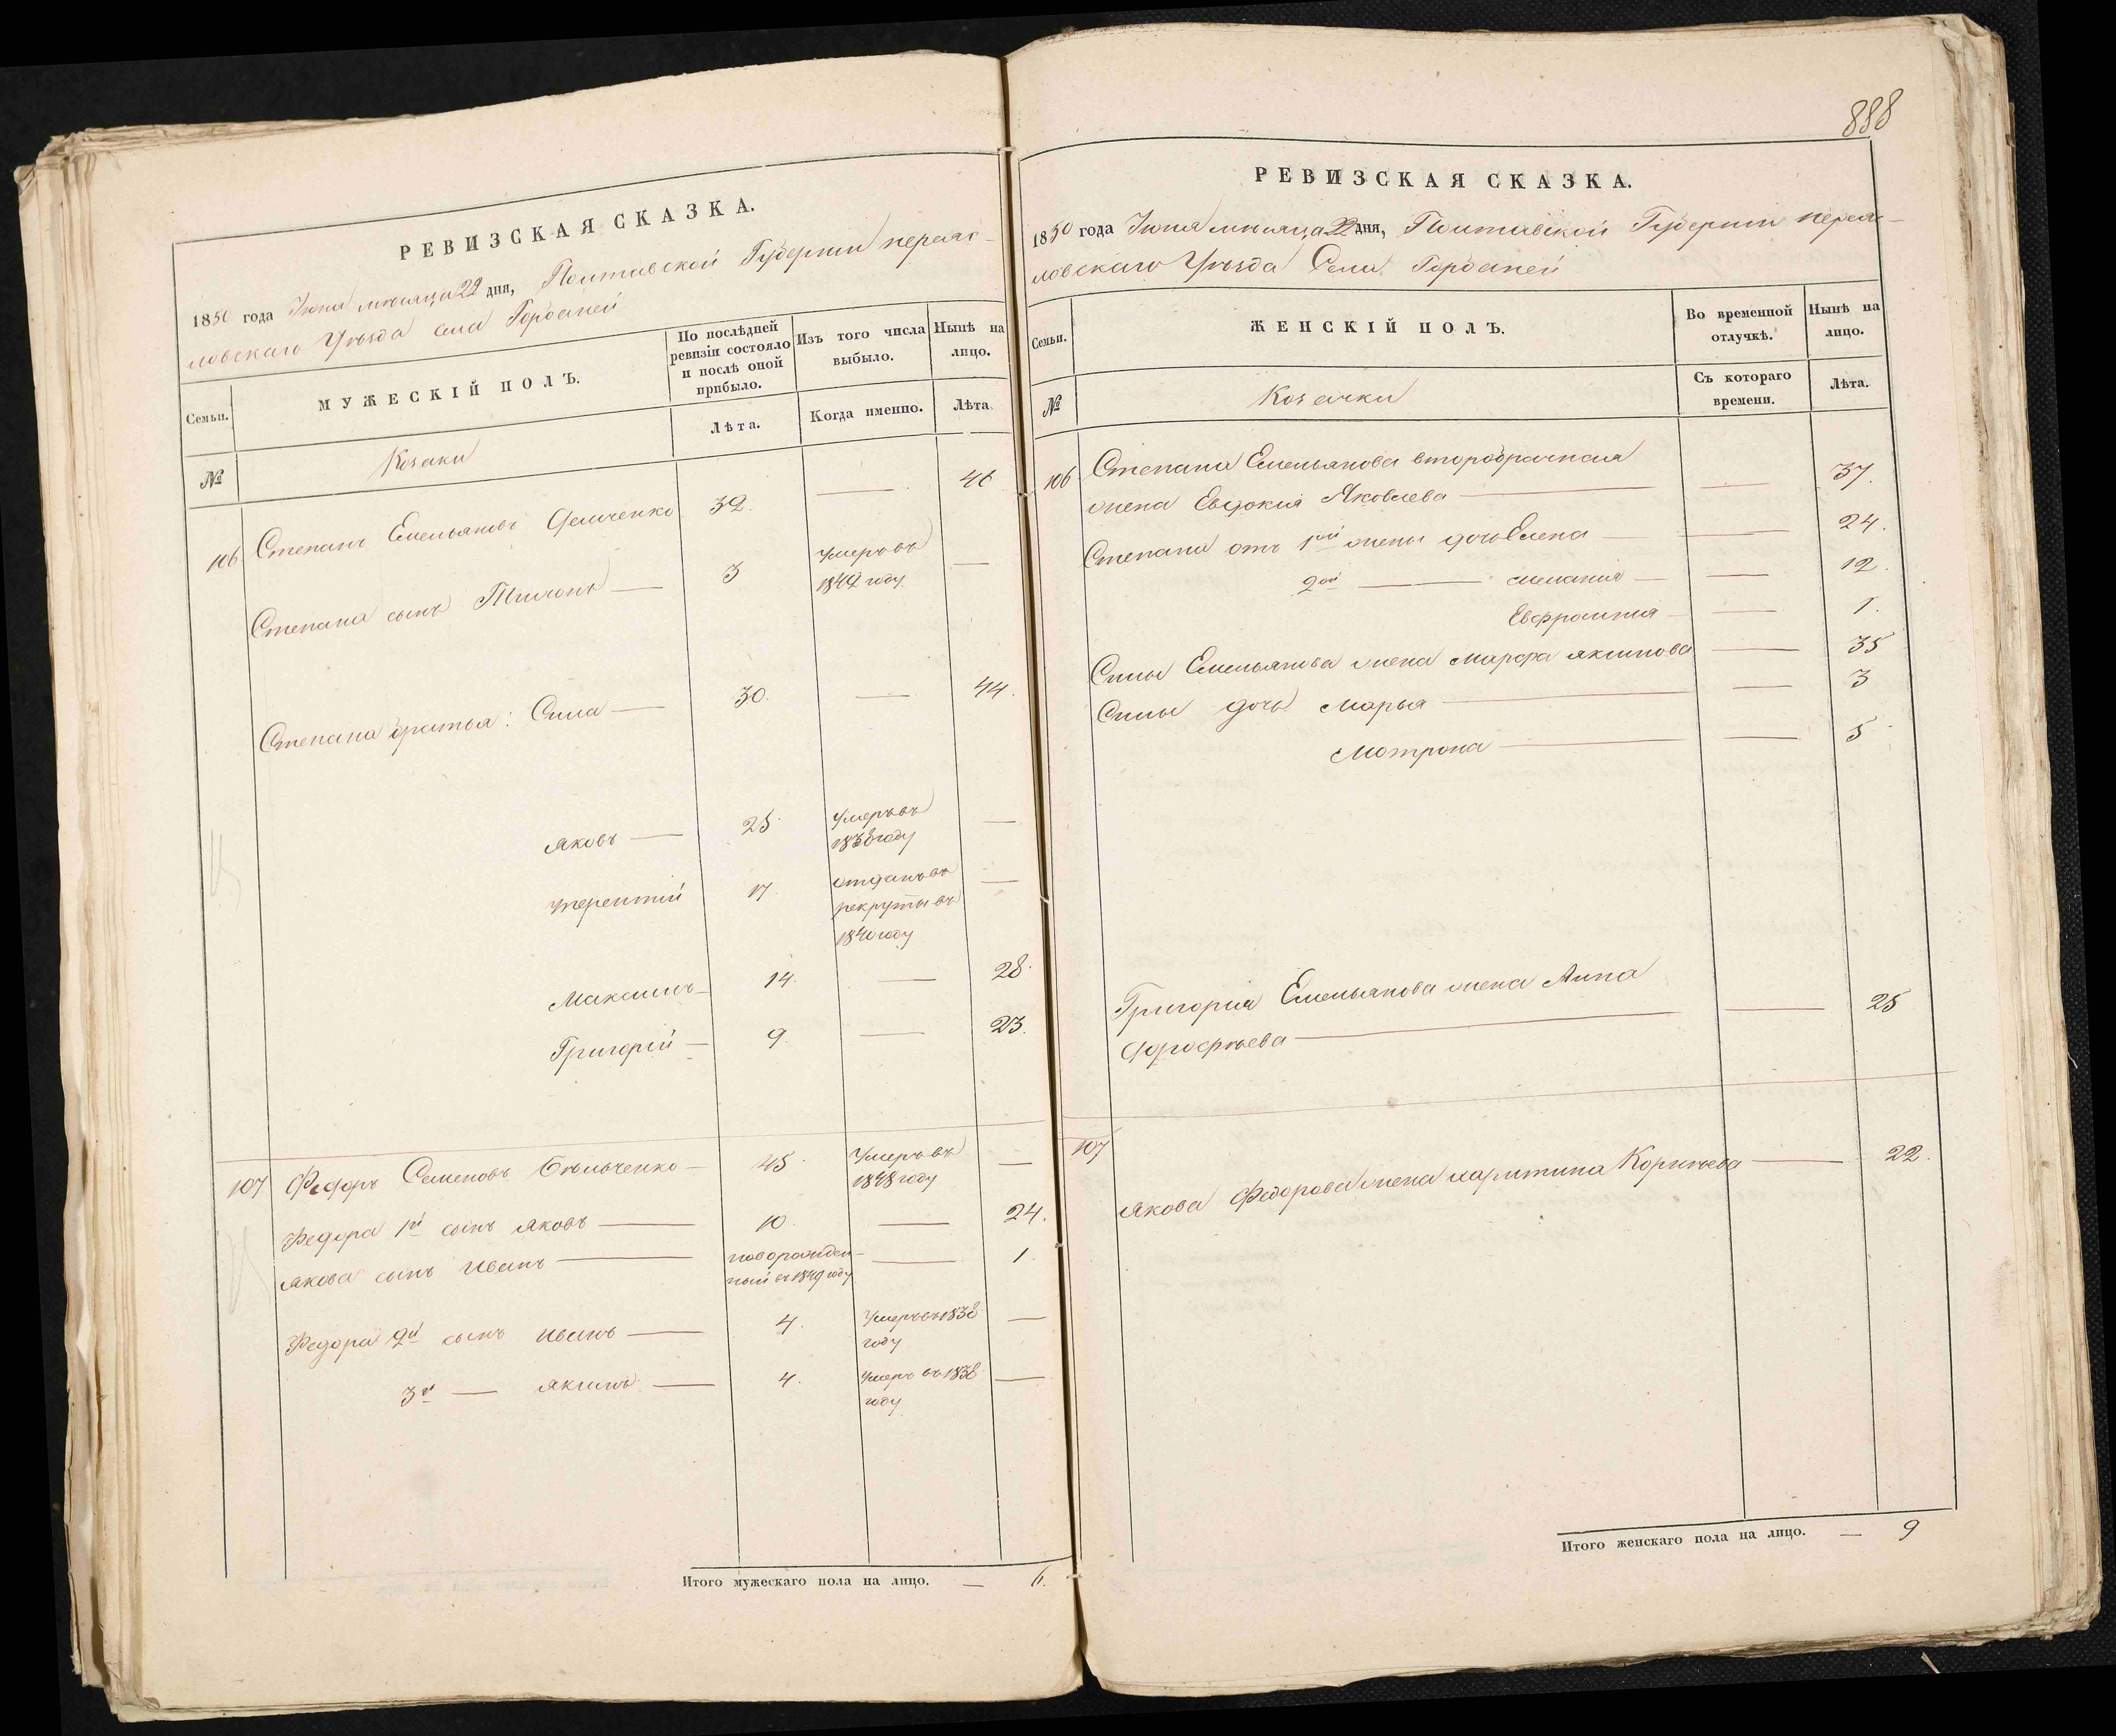 РЕВИЗСКАЯ СКАЗКА.
1850 года Июня мѣсяца 22 дня, Полтавской Губернїи переяс-
ловскаго Уѣзда села Горбаней
Семьи.
МУЖЕСКІЙ ПОЛЪ.
По послѣдней ревизіи состояло и послѣ оной прибыло.
Изъ того числа выбыло.
Нынѣ на лицо.
№
Козаки
Лѣта.
Когда именно.
Лѣта
106 Степанъ Емельяновъ 32. — 46
Степана сынъ 3 Умеръ въ —
году
Степана братья: Сила — 30. — 44.
Яковъ — 25. Умеръ въ —
1838 году
Терентїй 17. отданъ въ —
рекруты въ
1840 году
Максимъ — 14. — 28.
Григорїй — 9. — 23.
107 Федоръ Семеновъ Бѣльченко — 45. Умеръ въ —
1848 году
Федора 1й сынъ Яковъ — 10. — 24.
Якова сынъ Иванъ — новорожден- — 1.
ный въ 1849 году
Федора 2й сынъ Иванъ — 4. Умеръ въ 1838 —
году
3й — Якимъ — 4. Умеръ въ 1838 —
году
Итого мужескаго пола на лицо. — 6.
888
РЕВИЗСКАЯ СКАЗКА.
1850 года Июня мѣсяца 22 дня, Полтавской Губернїи переяс-
ловскаго Уѣзда Села Горбаней
Семьи.
ЖЕНСКІЙ ПОЛЪ.
Во временной отлучкѣ.
Нынѣ на лицо.
№
Козачки
Съ котораго времени.
Лѣта.
106 Степана Емельянова второбрачная
жена Евдокия Яковлева — — 37.
Степана отъ 1ой жены дочь Елена — — 24.
2ой — Мелания — — 12.
Евфросиния — — 1.
Силы Емельянова жена Марфа Якимова — 35
Силы дочь Марья — — 3
Мотрона — — 5
Григорїя Емельянова жена Анна
Дорофѣева — — 25
107
Якова Федорова жена Харитина Корнѣева — 22.
Итого женскаго пола на лицо. — 9